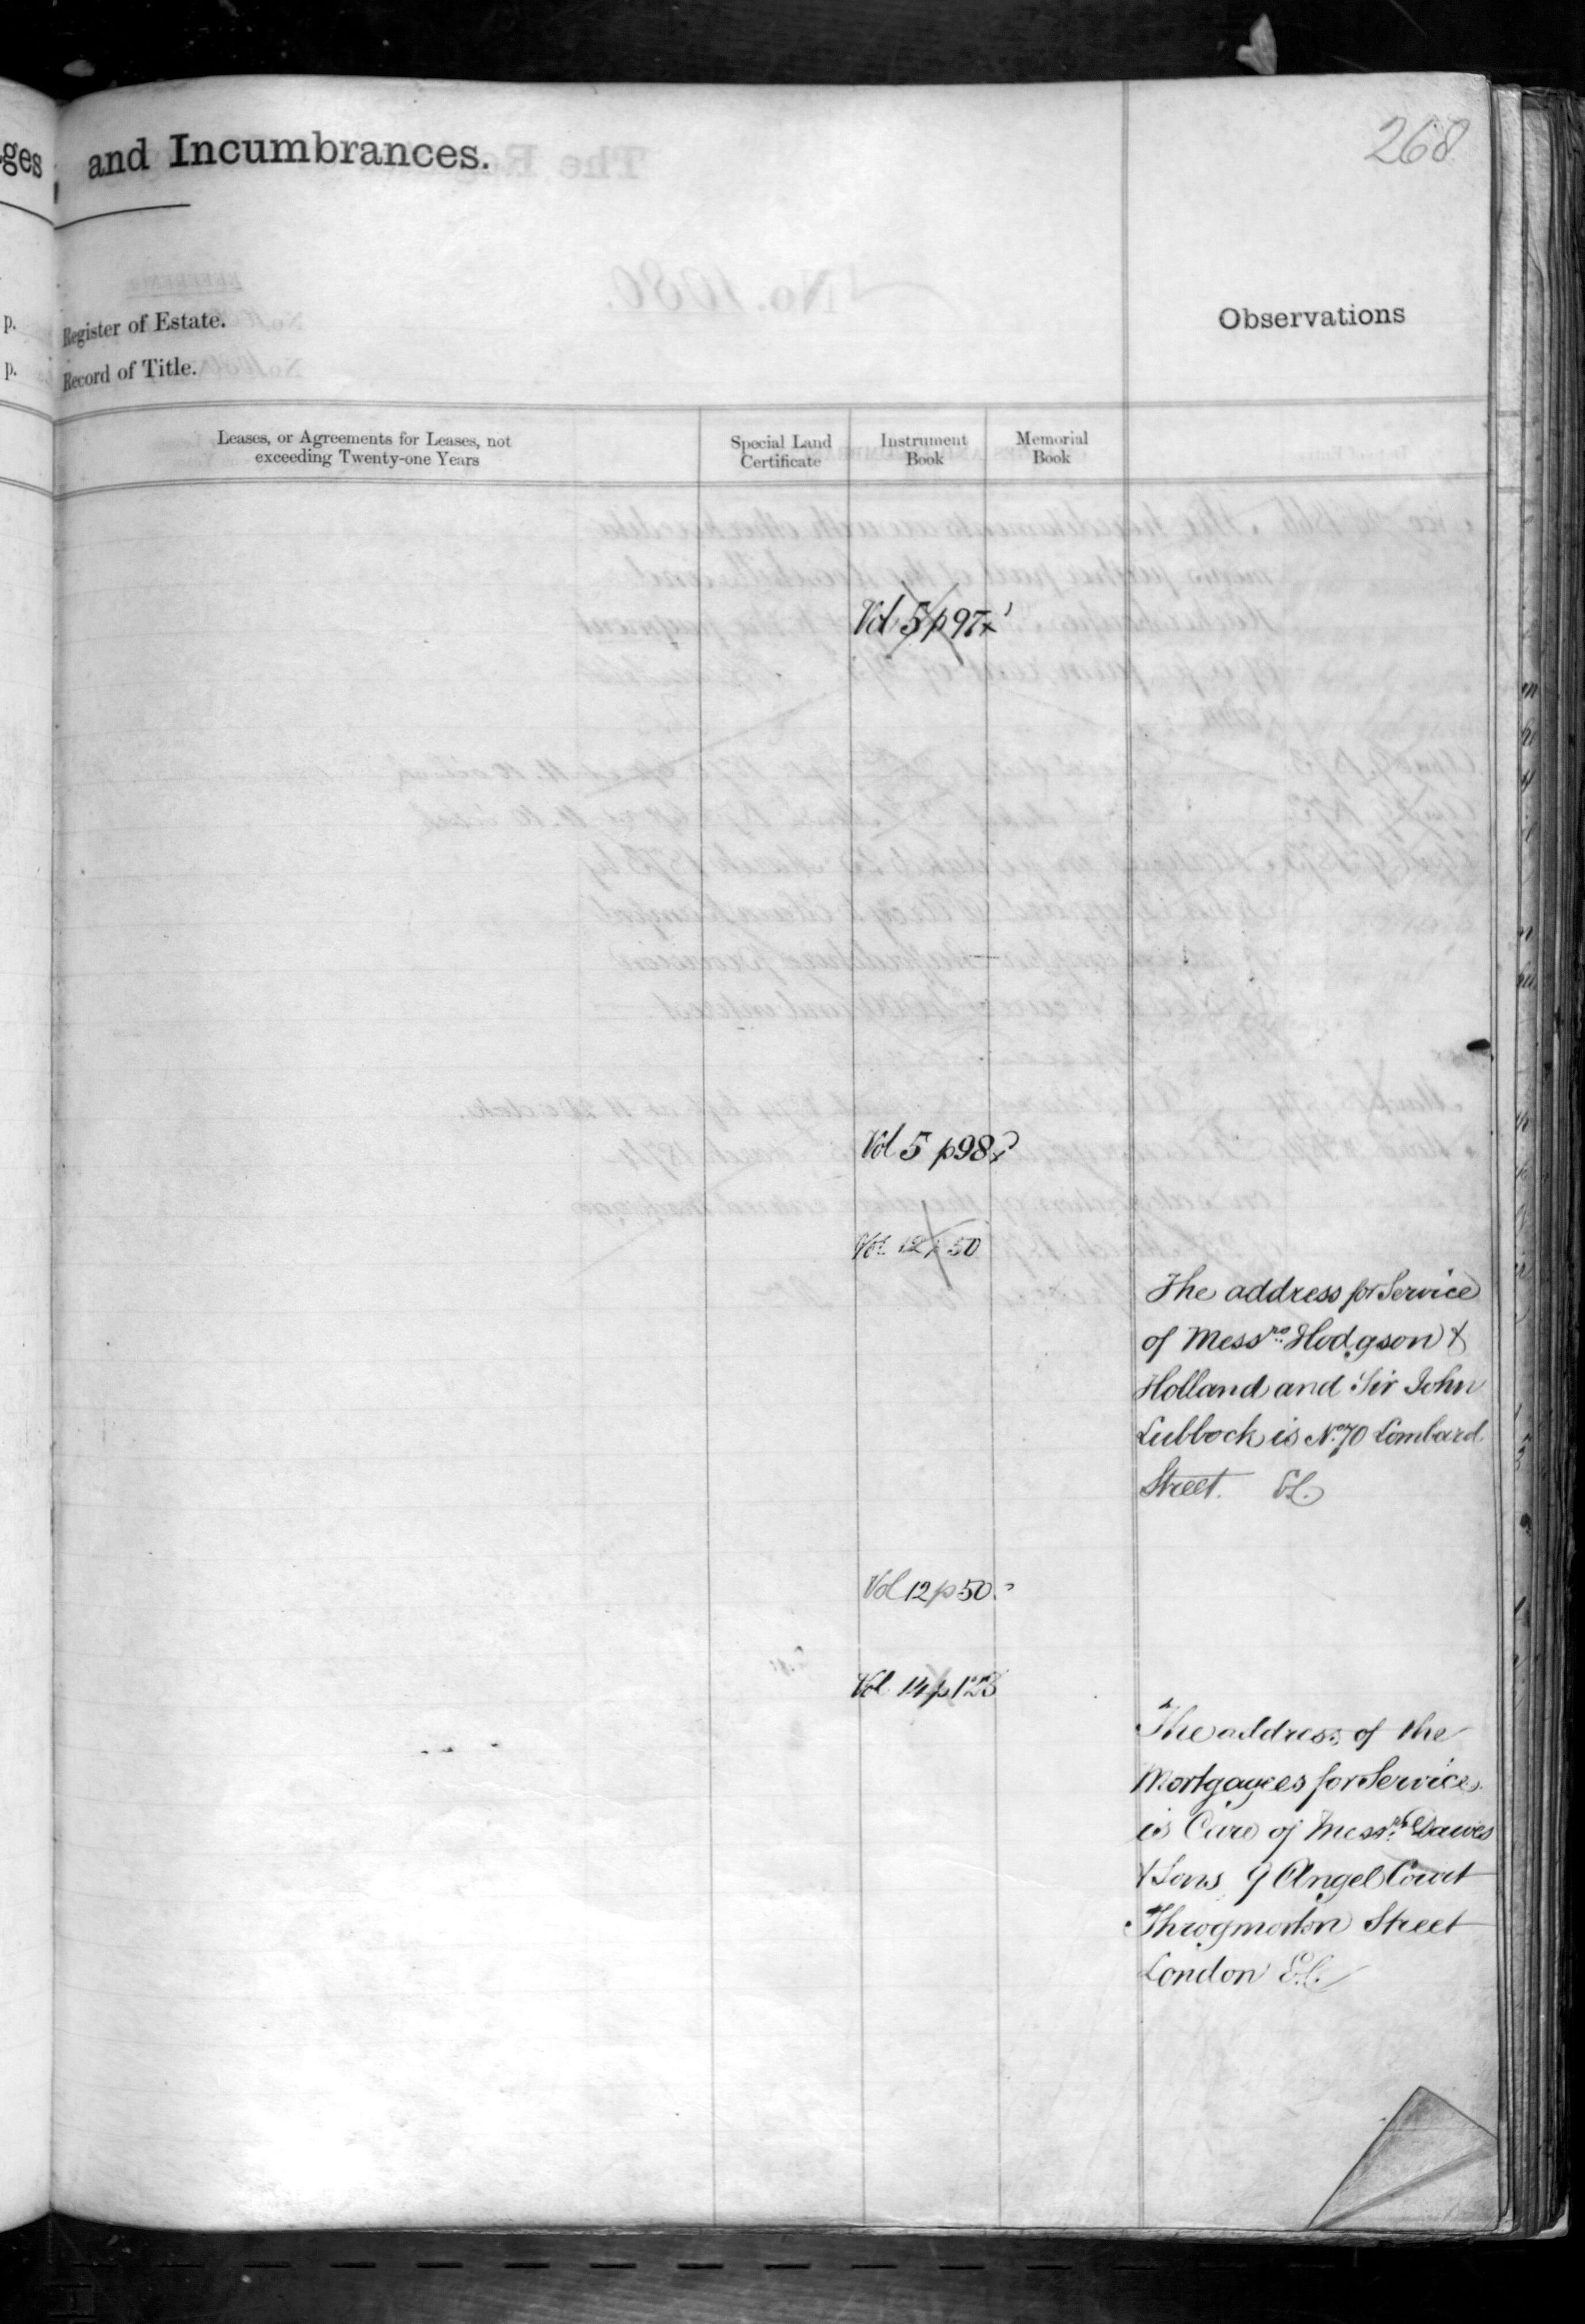 ges
and Incumbrances.
268
p.
Register of Estate.
Observations
p.
Record of Title.
Leases, or Agreements for Leases, not
exceeding Twenty-one Years
Special Land
Certificate
Instrument
Book
Memorial
Book
Vol 5 p 97
Vol 5 p 98
Vol 12 p 50
The address for Service
of Messrs Hodgson &
Holland and Sir John
Lubbock is No. 70 Lombard
Street. E.C.
Vol 12 p 50
Vol 14 p 123
The address of the
Mortgagees for Service
is Care of Messrs Dawes
& Sons 9 Angel Court
Throgmorton Street
London E.C.